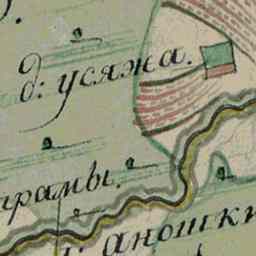 д: усяжа.
грамы.
аношки